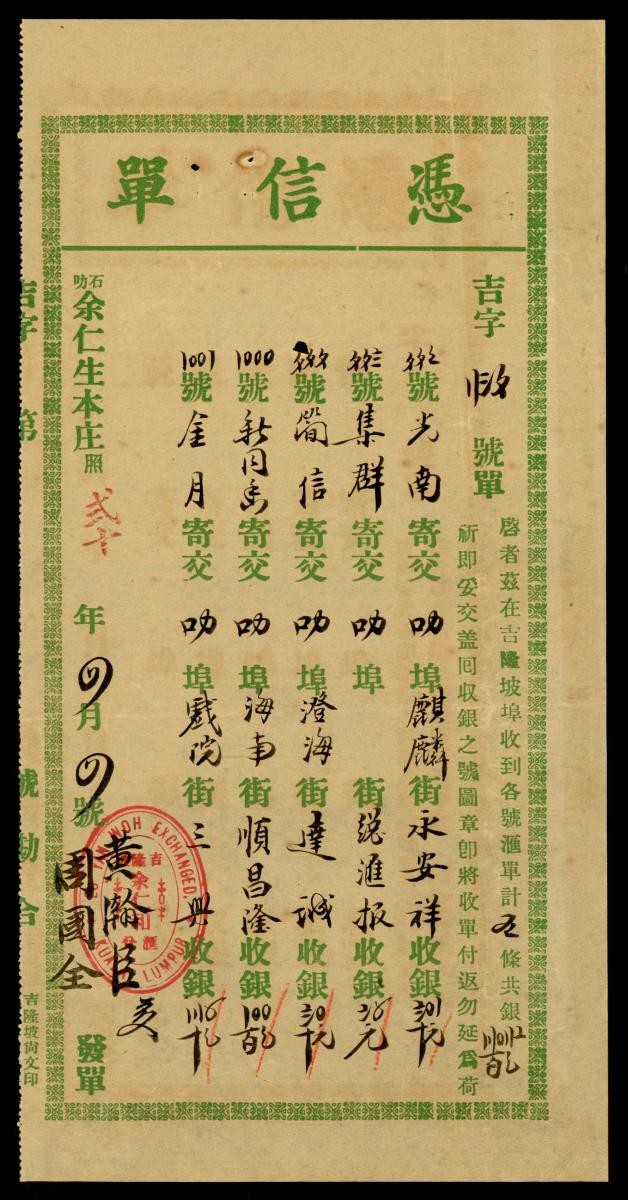 憑信單
吉字 號單
啓者茲在吉隆坡埠收到各號滙單計五條共銀
祈即妥交盖囘收銀之號圖章卽將收單付返勿延爲荷
號光南寄交叻埠麒麟街永安祥收銀
號集群寄交叻埠 街總滙報收銀
號簡信寄交叻埠澄海街達誠收銀
1000號新同 寄交叻埠海南街順昌隆收銀
1001號金月寄交叻埠戲院街三興收銀
石叻余仁生本庄照 弍十年〤月〤號 黃瀚臣 周國全 發單
YAN WOH EXCHANGED
KUALA LUMPUR
吉隆
余仁
滙
吉字 第 號 勘合
吉隆坡尙文印